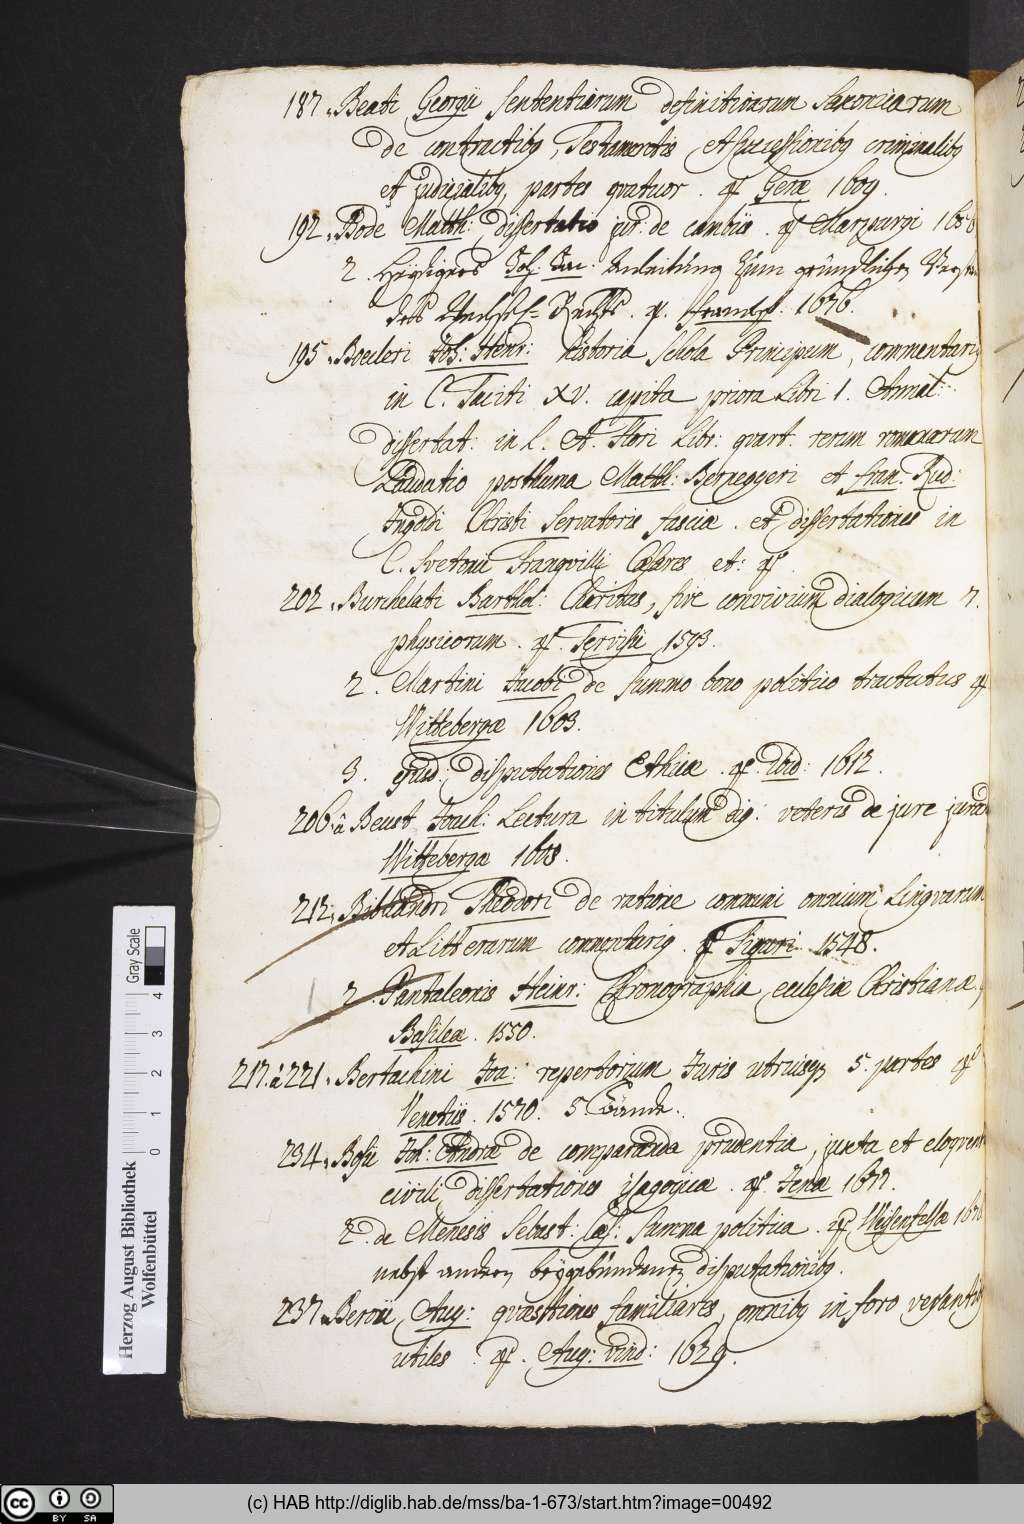 187. Beati Georgii Sententiarum definitivarum Saxonicarum
de contractibg, Testamentis et successionibg criminalibg
et judicialibg, partes quatuor. qt Genæ 1609.
192. Bode Matth: dissertatio jur: de cambiis. qt Marpurgi 1656
2. Heÿsigers Joh. Jac: Anleitüng züm gründlichen
des Wechsel-Rechts. q. Francf: 1676.
195. Boecleri Joh: Henr: historia schola Principum, commentarig
in C. Taciti XV. capita priora Libri 1. Annal:
dissertat: in L. A. Flori Libr: quart. rerum romanarum
Laudatio posthuma Matth: Berneggeri et Fran. Rud:
Ingoldi Christi Servatoris fasciæ. et dissertationes in
C. Svetonii Tranqvilli Cæsares et: qt.
202. Burchelati Barthol: Charitas, sive convivium dialogicum 7.
physicorum. qt. Tervisii 1593.
2. Martini Jacobi de summo bono politico tractatus qt
Wittebergæ 1603.
3. ejusd: disputationes Ethicæ. qt. ibid: 1612.
206. a Beust Joach: Lectura in titulum dig: veteris de jure jurando
Witteberga 1608.
212. Bibliandri Theodori de ratione communi omnium Lingvarum
et Litterarum commentarig. qt Tiguri 1548.
2. Pantaleonis Heinr: Chronographia ecclesiæ Christianæ,
Basileæ. 1550.
217. à 221. Bertachini Joa: repertorium Juris utriusq 5. partes qt
Venetiis. 1570. 5 Bände.
234. Bosii Joh: Andreæ de comparanda prudentia, juxta et eloqvent
civili, dissertationes isagogicæ. qt. Jenæ 1677.
2. de Menesis Sebast: Cæs: Summa politica. qt Weisenfelsæ 1676
nebst andern beÿgebündenen disputationibg.
237. Beroii Aug: qvæstiones familiares, omnibg in foro versantibg
utiles. qt. Aug: vind: 1629.
Gray Scale
4
3
2
1
0
Herzog August Bibliothek
Wolfenbüttel
cc BY SA
(c) HAB http://diglib.hab.de/mss/ba-1-673/start.htm?image=00492